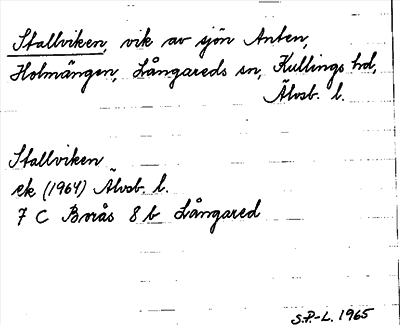 Stallviken, vik av sjön Anten,
Holmängen, Långareds sn, Kullings hd,
Älvsb. l.
Stallviken
ek (1964) Älvsb. l.
7 C Borås 8 b Långared
S.P-L. 1965